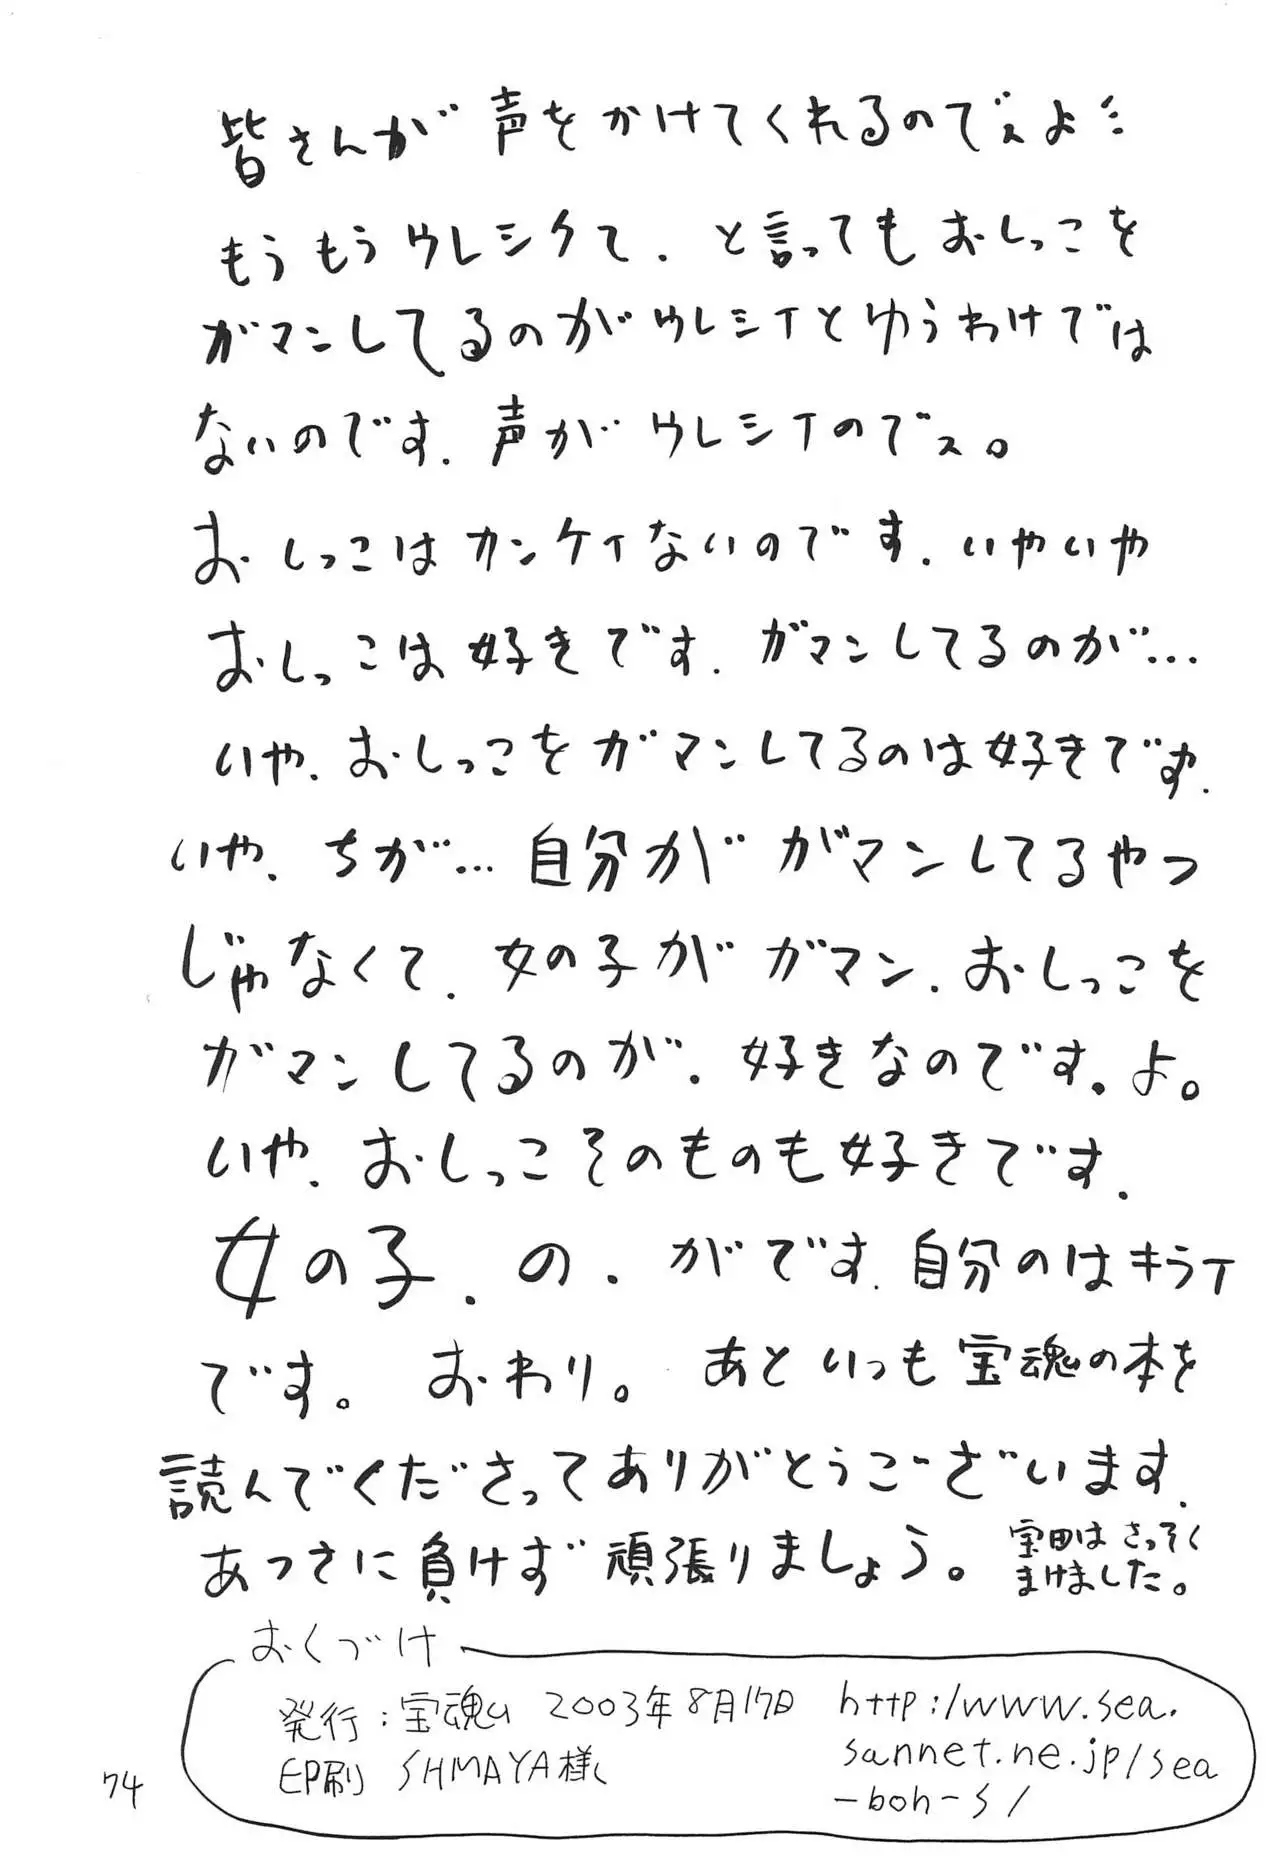 皆さんが声をかけてくれるのでスよミ
もうもうウレシクて.と言ってもおしっこを
ガマンしてるのがウレシイとゆうわけでは
ないのです.声がウレシイのでス。
おしっこはカンケイないのです.いやいや
おしっこは好きです.ガマンしてるのが…
いや.おしっこをガマンしてるのは好きです.
いや.ちが…自分がガマンしてるやつ
じゃなくて.女の子がガマン.おしっこを
ガマンしてるのが.好きなのです.よ。
いや.おしっこそのものも好きです.
女の子.の.がです.自分のはキライ
です。おわり。あといつも宝魂の本を
読んでくださってありがとうございます.
あつさに負けず頑張りましょう。
宝田はさっそく
まけました。
おくづけ
発行:宝魂 2003年8月17日
印刷 SHMAYA様
http://www.sea.
sannet.ne.jp/sea
-boh-s/
74